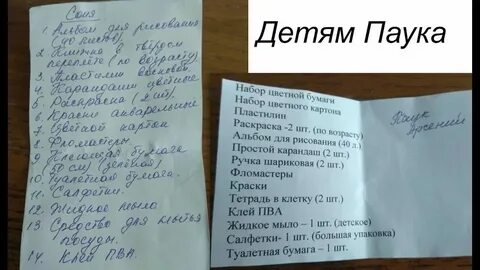 Соня
1. Альбом для рисования
(40 листов)
2. Книжка в твёрдом
переплёте (по возрасту).
3. Пластилин восковой
4. Карандаши цветные
5. Раскраска (2 шт).
6. Краски акварельные
7. Цветной картон
8. Фломастеры.
9. бумага
50 см) (зелёной)
10. Туалетная бумага.
11. Салфетки.
12. Жидкое мыло
13. Средство для мытья
посуды.
14. Клей ПВА.
Детям Паука
Набор цветной бумаги
Набор цветного картона
Пластилин
Раскраска -2 шт. (по возрасту)
Альбом для рисования (40 л.)
Простой карандаш (2 шт.)
Ручка шариковая (2 шт.)
Фломастеры
Краски
Тетрадь в клетку (2 шт.)
Клей ПВА
Жидкое мыло – 1 шт. (детское)
Салфетки- 1 шт. (большая упаковка)
Туалетная бумага – 1 шт.
Паук
Арсений